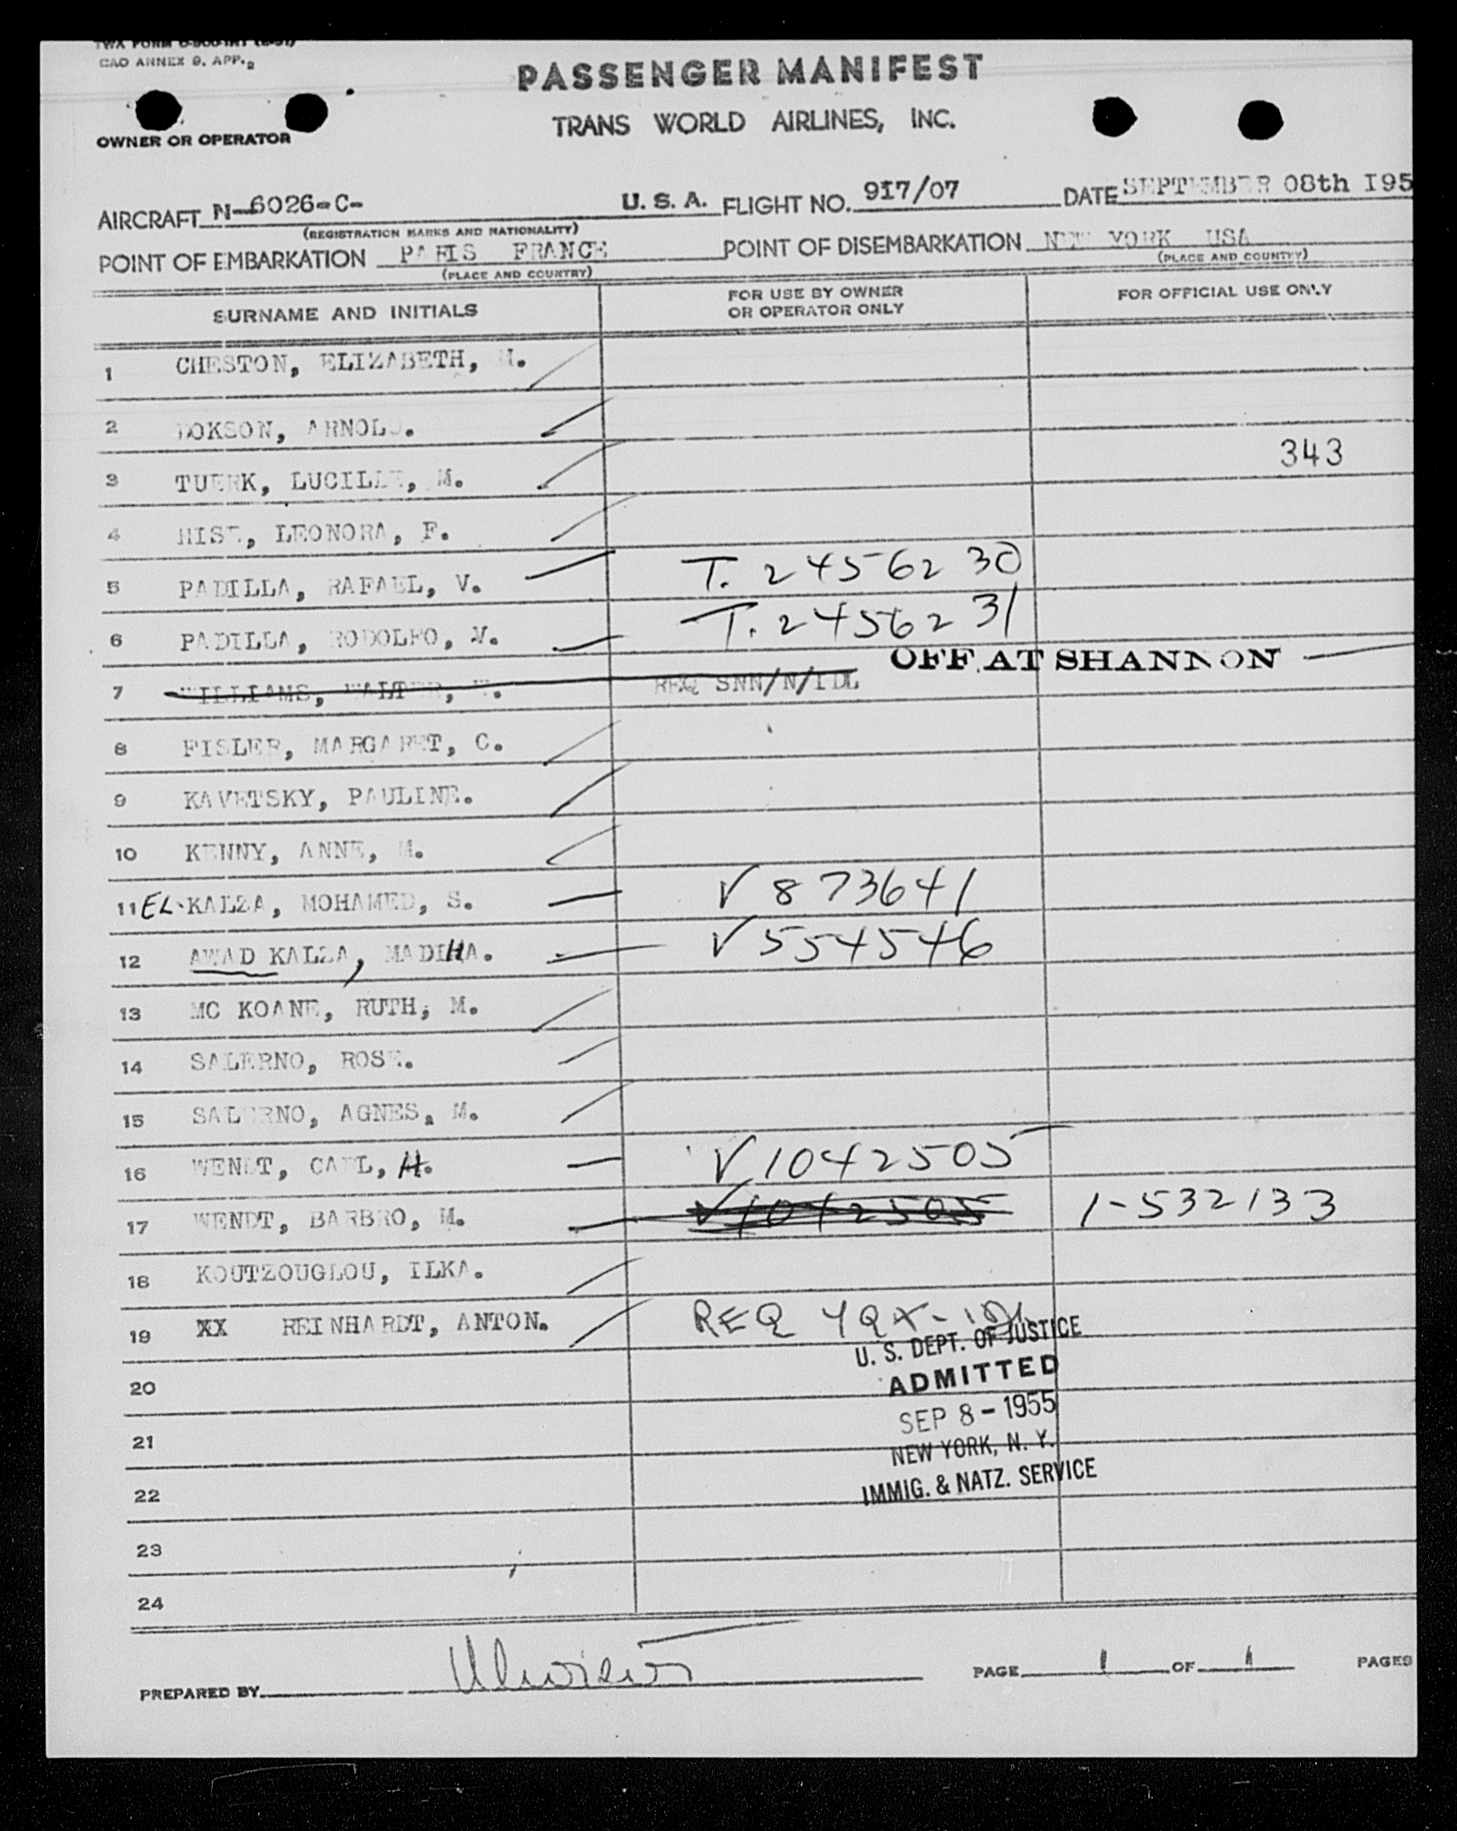 TWA FORM
CAO ANNEX 9. APP. 2
PASSENGER MANIFEST
TRANS WORLD AIRLINES, INC.
OWNER OR OPERATOR
AIRCRAFT N-6026-C- U. S. A. FLIGHT NO. 917/07 DATE SEPTEMBER 08th 195
(REGISTRATION MARKS AND NATIONALITY)
POINT OF EMBARKATION PARIS FRANCE POINT OF DISEMBARKATION NEW YORK USA
(PLACE AND COUNTRY) (PLACE AND COUNTRY)
SURNAME AND INITIALS FOR USE BY OWNER OR OPERATOR ONLY FOR OFFICIAL USE ONLY
1 CHESTON, ELIZABETH, M.
2 DOKSON, ARNOLD.
343
3 TUERK, LUCILLE, M.
4 HISE, LEONORA, F.
5 PADILLA, RAFAEL, V. T. 2456230
6 PADILLA, RODOLFO, V. T. 2456231
OFF AT SHANNON
7 WILLIAMS, WALTER, REQ SNN/N/IDL
8 FISLER, MARGARET, C.
9 KAVETSKY, PAULINE.
10 KENNY, ANNE, M.
11 EL-KALZA, MOHAMED, S. V 873641
12 AWAD KALZA, MADIHA. V 554546
13 MC KOANE, RUTH, M.
14 SALERNO, ROSE.
15 SALERNO, AGNES, M.
16 WENDT, CARL, H. V 1042505
17 WENDT, BARBRO, M. V 1042505 1-532133
18 KOUTZOUGLOU, ILKA.
19 XX REINHARDT, ANTON. REQ YQX-
U. S. DEPT. OF JUSTICE
20 ADMITTED
SEP 8 - 1955
21 NEW YORK, N. Y.
22 IMMIG. & NATZ. SERVICE
23
24
PREPARED BY PAGE 1 OF 1 PAGES